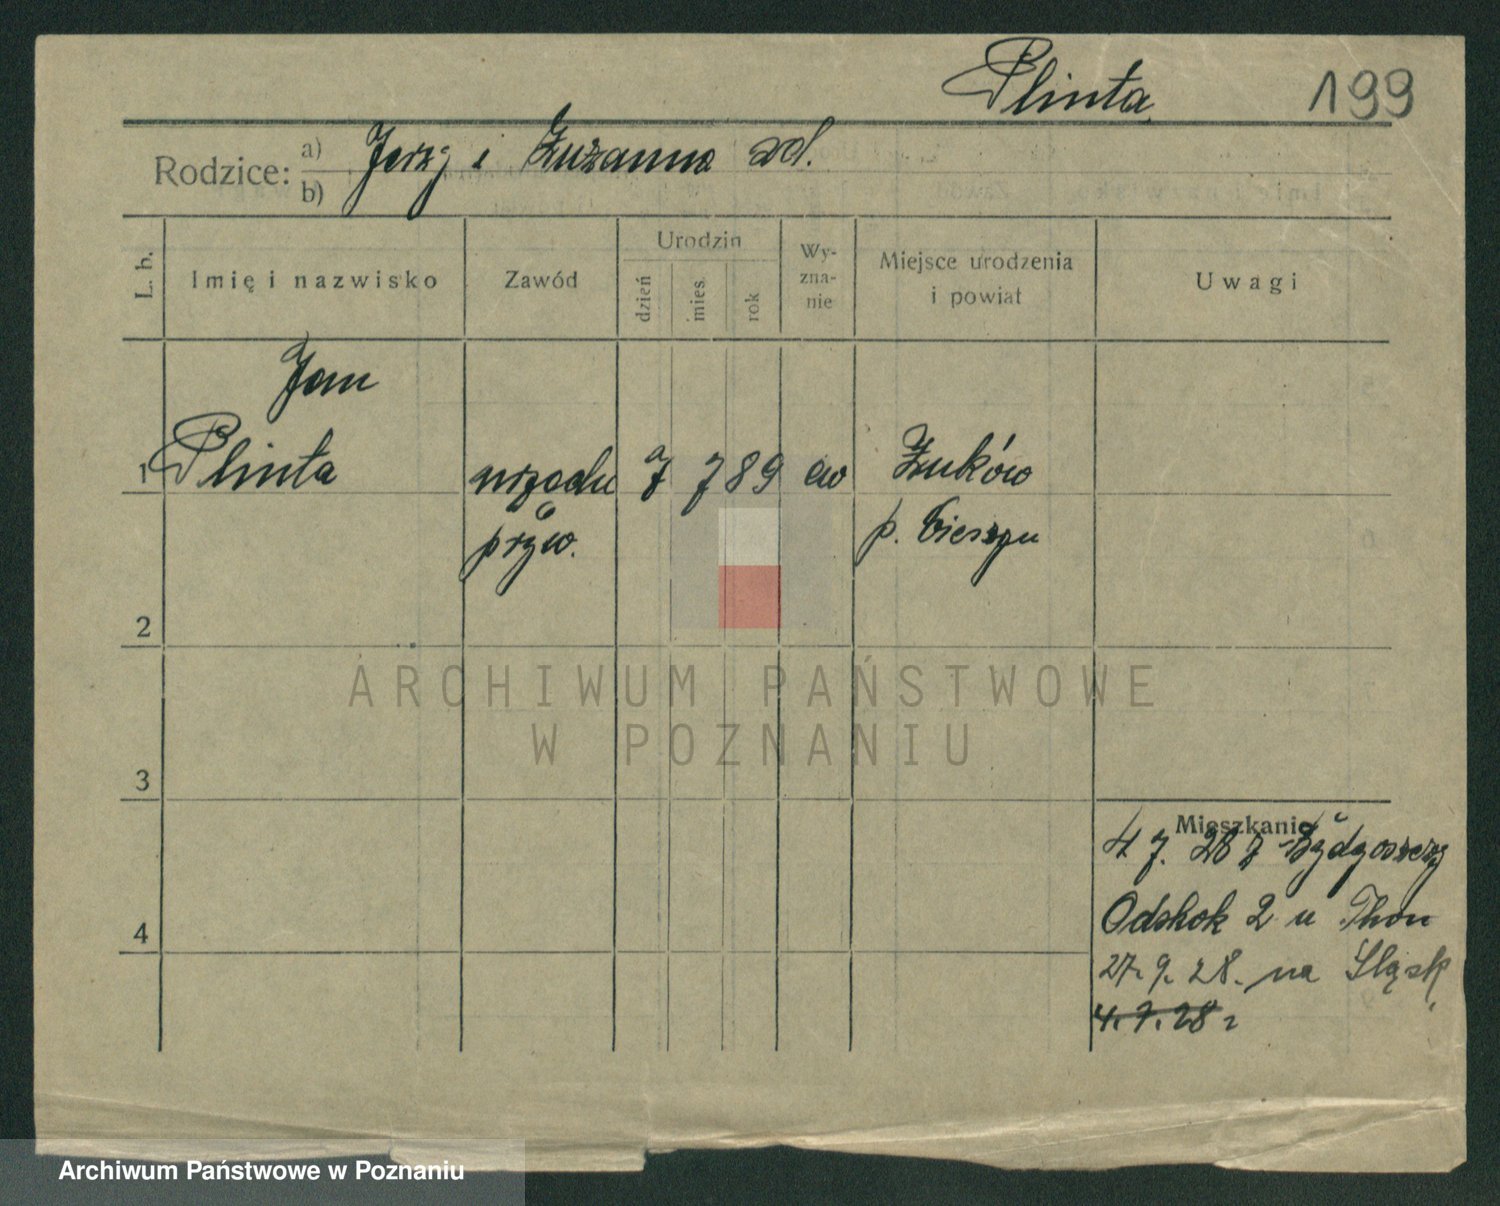 Plinta 199
Rodzice: a) Jerzy i Zuzanna
b)
L. b. Imię i nazwisko Zawód Urodzin dzień mies. rok Wy-zna-nie Miejsce urodzenia i powiat Uwagi
Jan
1 Plinta urzędn 7 7 89 ew Żuków
pryw. p. Cieszyn
2
ARCHIWUM PAŃSTWOWE
W POZNANIU
3
Mieszkanie
4 7. 28 z Bydgoszczy
Odskok 2 u Thon
4
27. 9. 28. na Śląsk
4. 7. 28 r
Archiwum Państwowe w Poznaniu